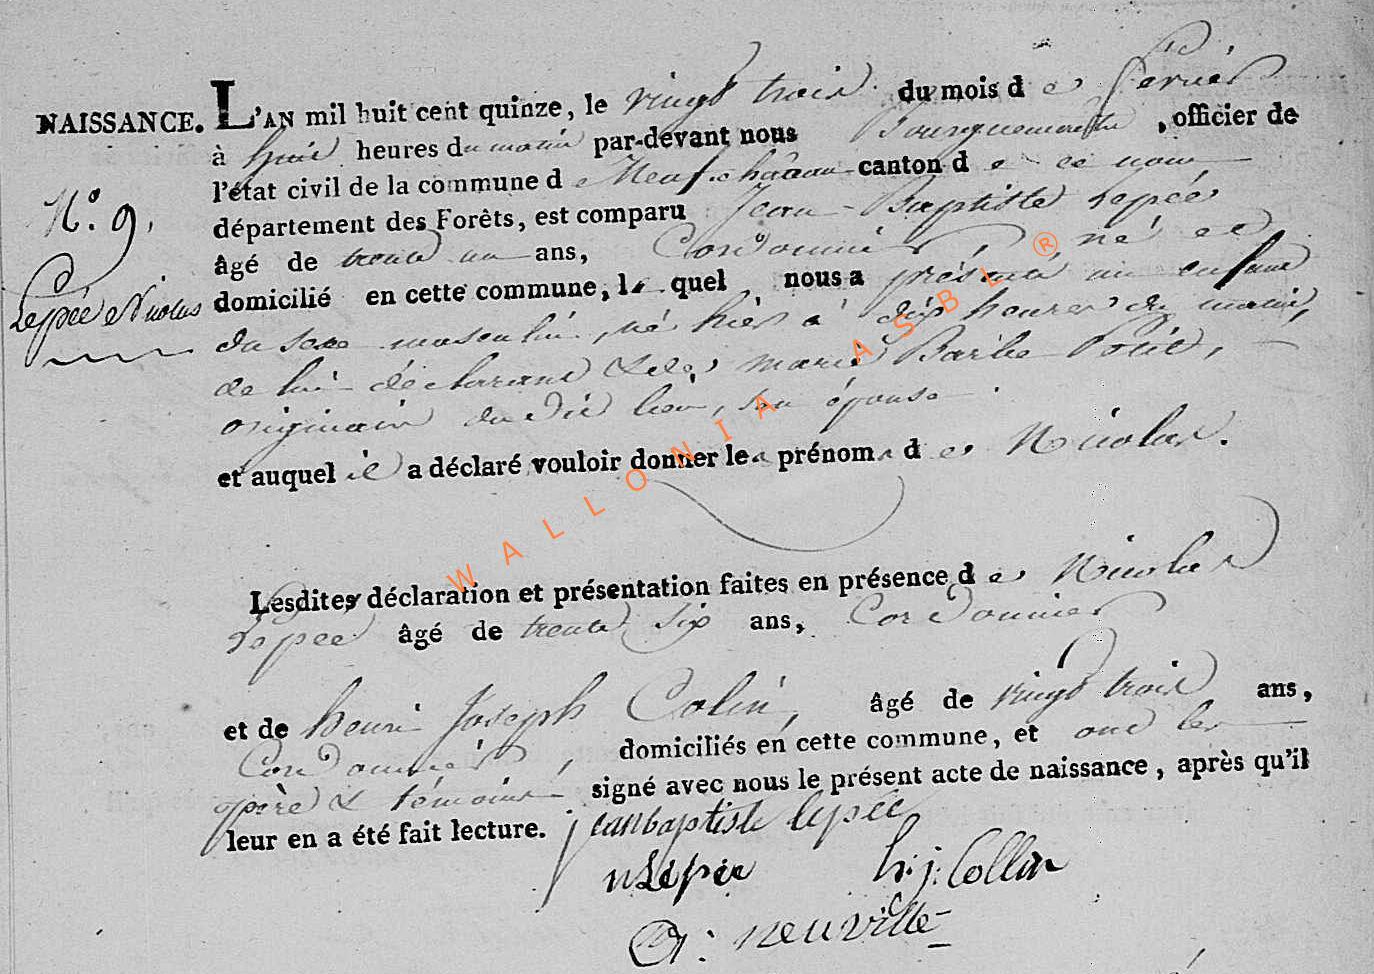 NAISSANCE. L'AN mil huit cent quinze, le vingt trois du mois de fevrier
à huit heures du matin par-devant nous Bourguemaestre, officier de
l'état civil de la commune de Neufchâteau canton de ce nom
N.º 9. département des Forêts, est comparu Jean-Baptiste Lepée
âgé de trente un ans, Cordonnier né et
Lepée Nicolas domicilié en cette commune, le quel nous a présenté un enfant
du sexe masculin, né hier à dix heures du matin,
de lui déclarant & de marie Barbe
originaire du dit lieu, son épouse
et auquel il a déclaré vouloir donner le prénom de Nicolas.
Lesdites déclaration et présentation faites en présence de Nicolas
Lepée âgé de trente six ans, Cordonnier
et de henri Joseph Colin, âgé de vingt trois ans,
Cordonnier, domiciliés en cette commune, et ont les
père & témoins signé avec nous le présent acte de naissance, après qu'il
leur en a été fait lecture. jean baptiste lepée
n Lepée h. j. Collin
neuville
WALLONIA ASBL ®